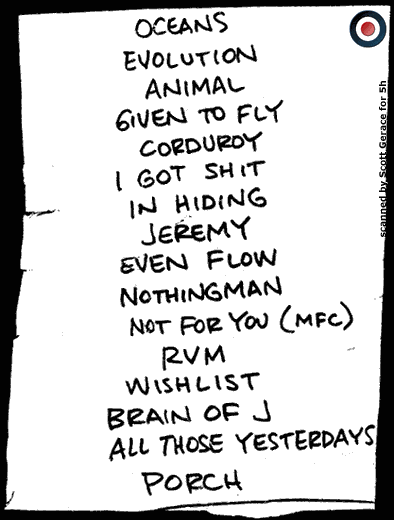 OCEANS
EVOLUTION
ANIMAL
GIVEN TO FLY
CORDUROY
I GOT SHIT
IN HIDING
JEREMY
EVEN FLOW
NOTHINGMAN
NOT FOR YOU (MFC)
RVM
WISHLIST
BRAIN OF J
ALL THOSE YESTERDAYS
PORCH
scanned by Scott Gerace for 5h